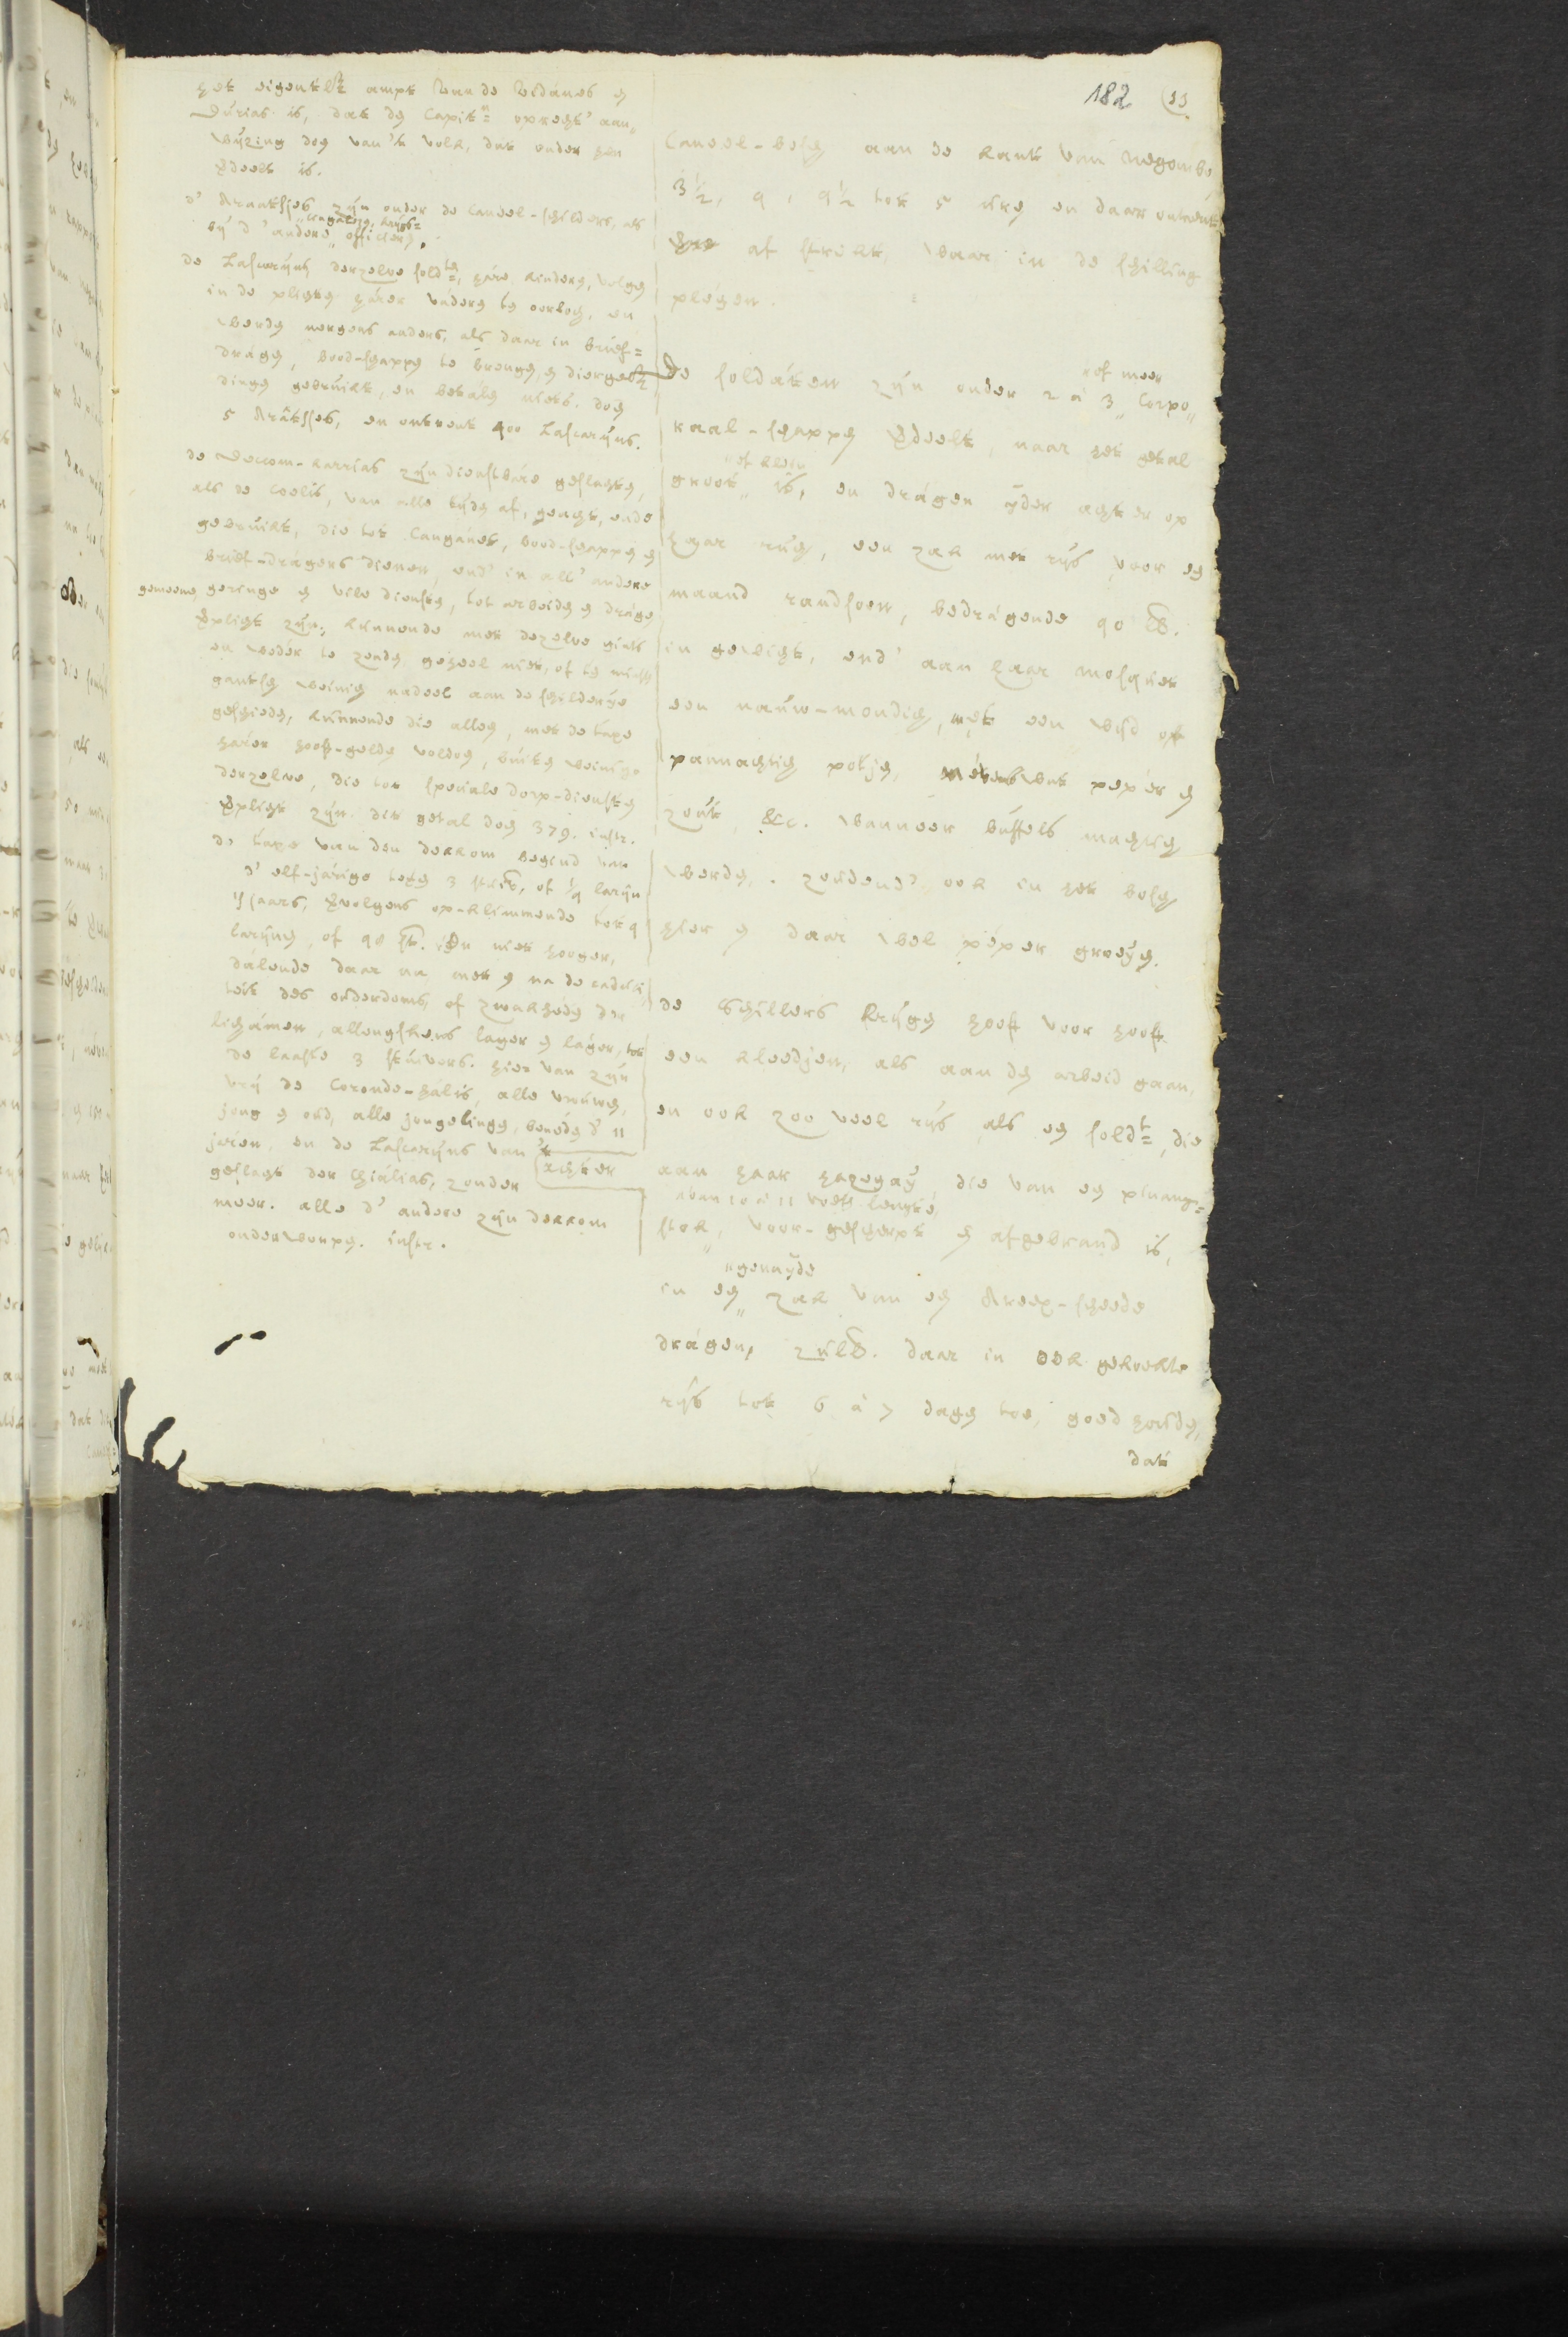 182 (33.
het eigentlk ampt van de Vidanes en
Durias is, dat den Capitn= oprecht' aan„
wijzing doen van 't volk, dat onder hen
verdeelt is.
d' Araatsjes zijn onder de Caneel-schilders, als
bij d' andere „ officiers.
de Lascarijns derzelve soldtn=, hare kinderen, volgen
in de plichten harer vaderen ten oorloch, en
werden nergens anders, als daar in brief=
dragen, bood-schappen te brengen, en diergelk
dingen gebruikt, en betalen niets. doen
5 Arâtsjes, en ontrent 400 Lascarijns.
de zijn dienstbare geslachten,
als de Coelis, van alle tijden af, geacht, ende
gebruikt, die tot Canganes, bood-schappen en
brief-dragers dienen, end' in all' andere
gemeene, geringe en vile diensten, tot arbeiden en dragen
verplicht zijn; kunnende met dezelve gints
en weder te zenden, geheel niet, of ten minsten
gantsch weinich nadeel aan de schilderije
geschieden, kunnende die alleen, met de taxe
harer hooft-gelden voldoen, buiten weinige
derzelve, die tot speciale dorp-diensten
verplicht zijn. dit getal doen 379. instr.
de taxe van den dekkom begind van
d' elf-jarige tegen 3 stuivs, of ¼ larijn
'sjaars, vervolgens op-klimmende tot 4
larijnen, of 48 st. En niet hooger,
dalende daar na met en na de
teit des ouderdoms, of zwakheden der
lichamen, allengskens lager en lager, tot
de laaste 3 stuivers. hier van zijn
vrij de Coronde-halis, alle vrouwen,
jong en oud, alle jongelingen, beneden d' 11
jaren, en de Lascarijns van 't
geslacht der Chialias, zonder
meer. alle d' andere zijn dekkom
onderworpen. instr.
achter
Caneel-bosch aan de kant van Negombo,
3½, 4, 4½ tot 5 uren en daar ontrent
af strekt, waar in de schilling
plegen.
De soldaten zijn onder 2 à 3 „ Corpo„
„of meer
raal-schappen verdeelt, naar het getal
„of klein
groot „ is, en dragen ijder achter op
haar rug, een zak met rijs voor een
maand randsoen, bedragende 40 lb.
in gewicht, end' aan haar mosquet
een nauw-mondich, met een wijd of
pannachtich potje, wat peper en
zout, &c. wanneer buffels machtich
werden. zoudend' ook in het bosch
hier en daar wel peper groeijen.
de Schillers krijgen hooft voor hooft
een kleedjen, als aan den arbeid gaan,
en ook zoo veel rijs als een soldt=, die
aan haar hazegaij, die van een pinang=
„van 10 à 11 voeten lengte,
stok „, voor-gescherpt en afgebrand is,
„genaijde
in een „ zak van een Areeq-scheede
dragen, zulx. daar in ook gekookte
rijs tot 6 à 7 dagen toe, goed houden,
dat